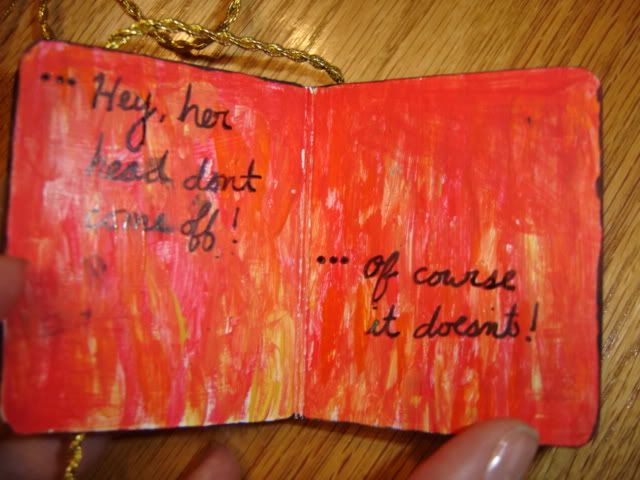 ... Hey, her
head dont
come off!
... of course
it doesnt!